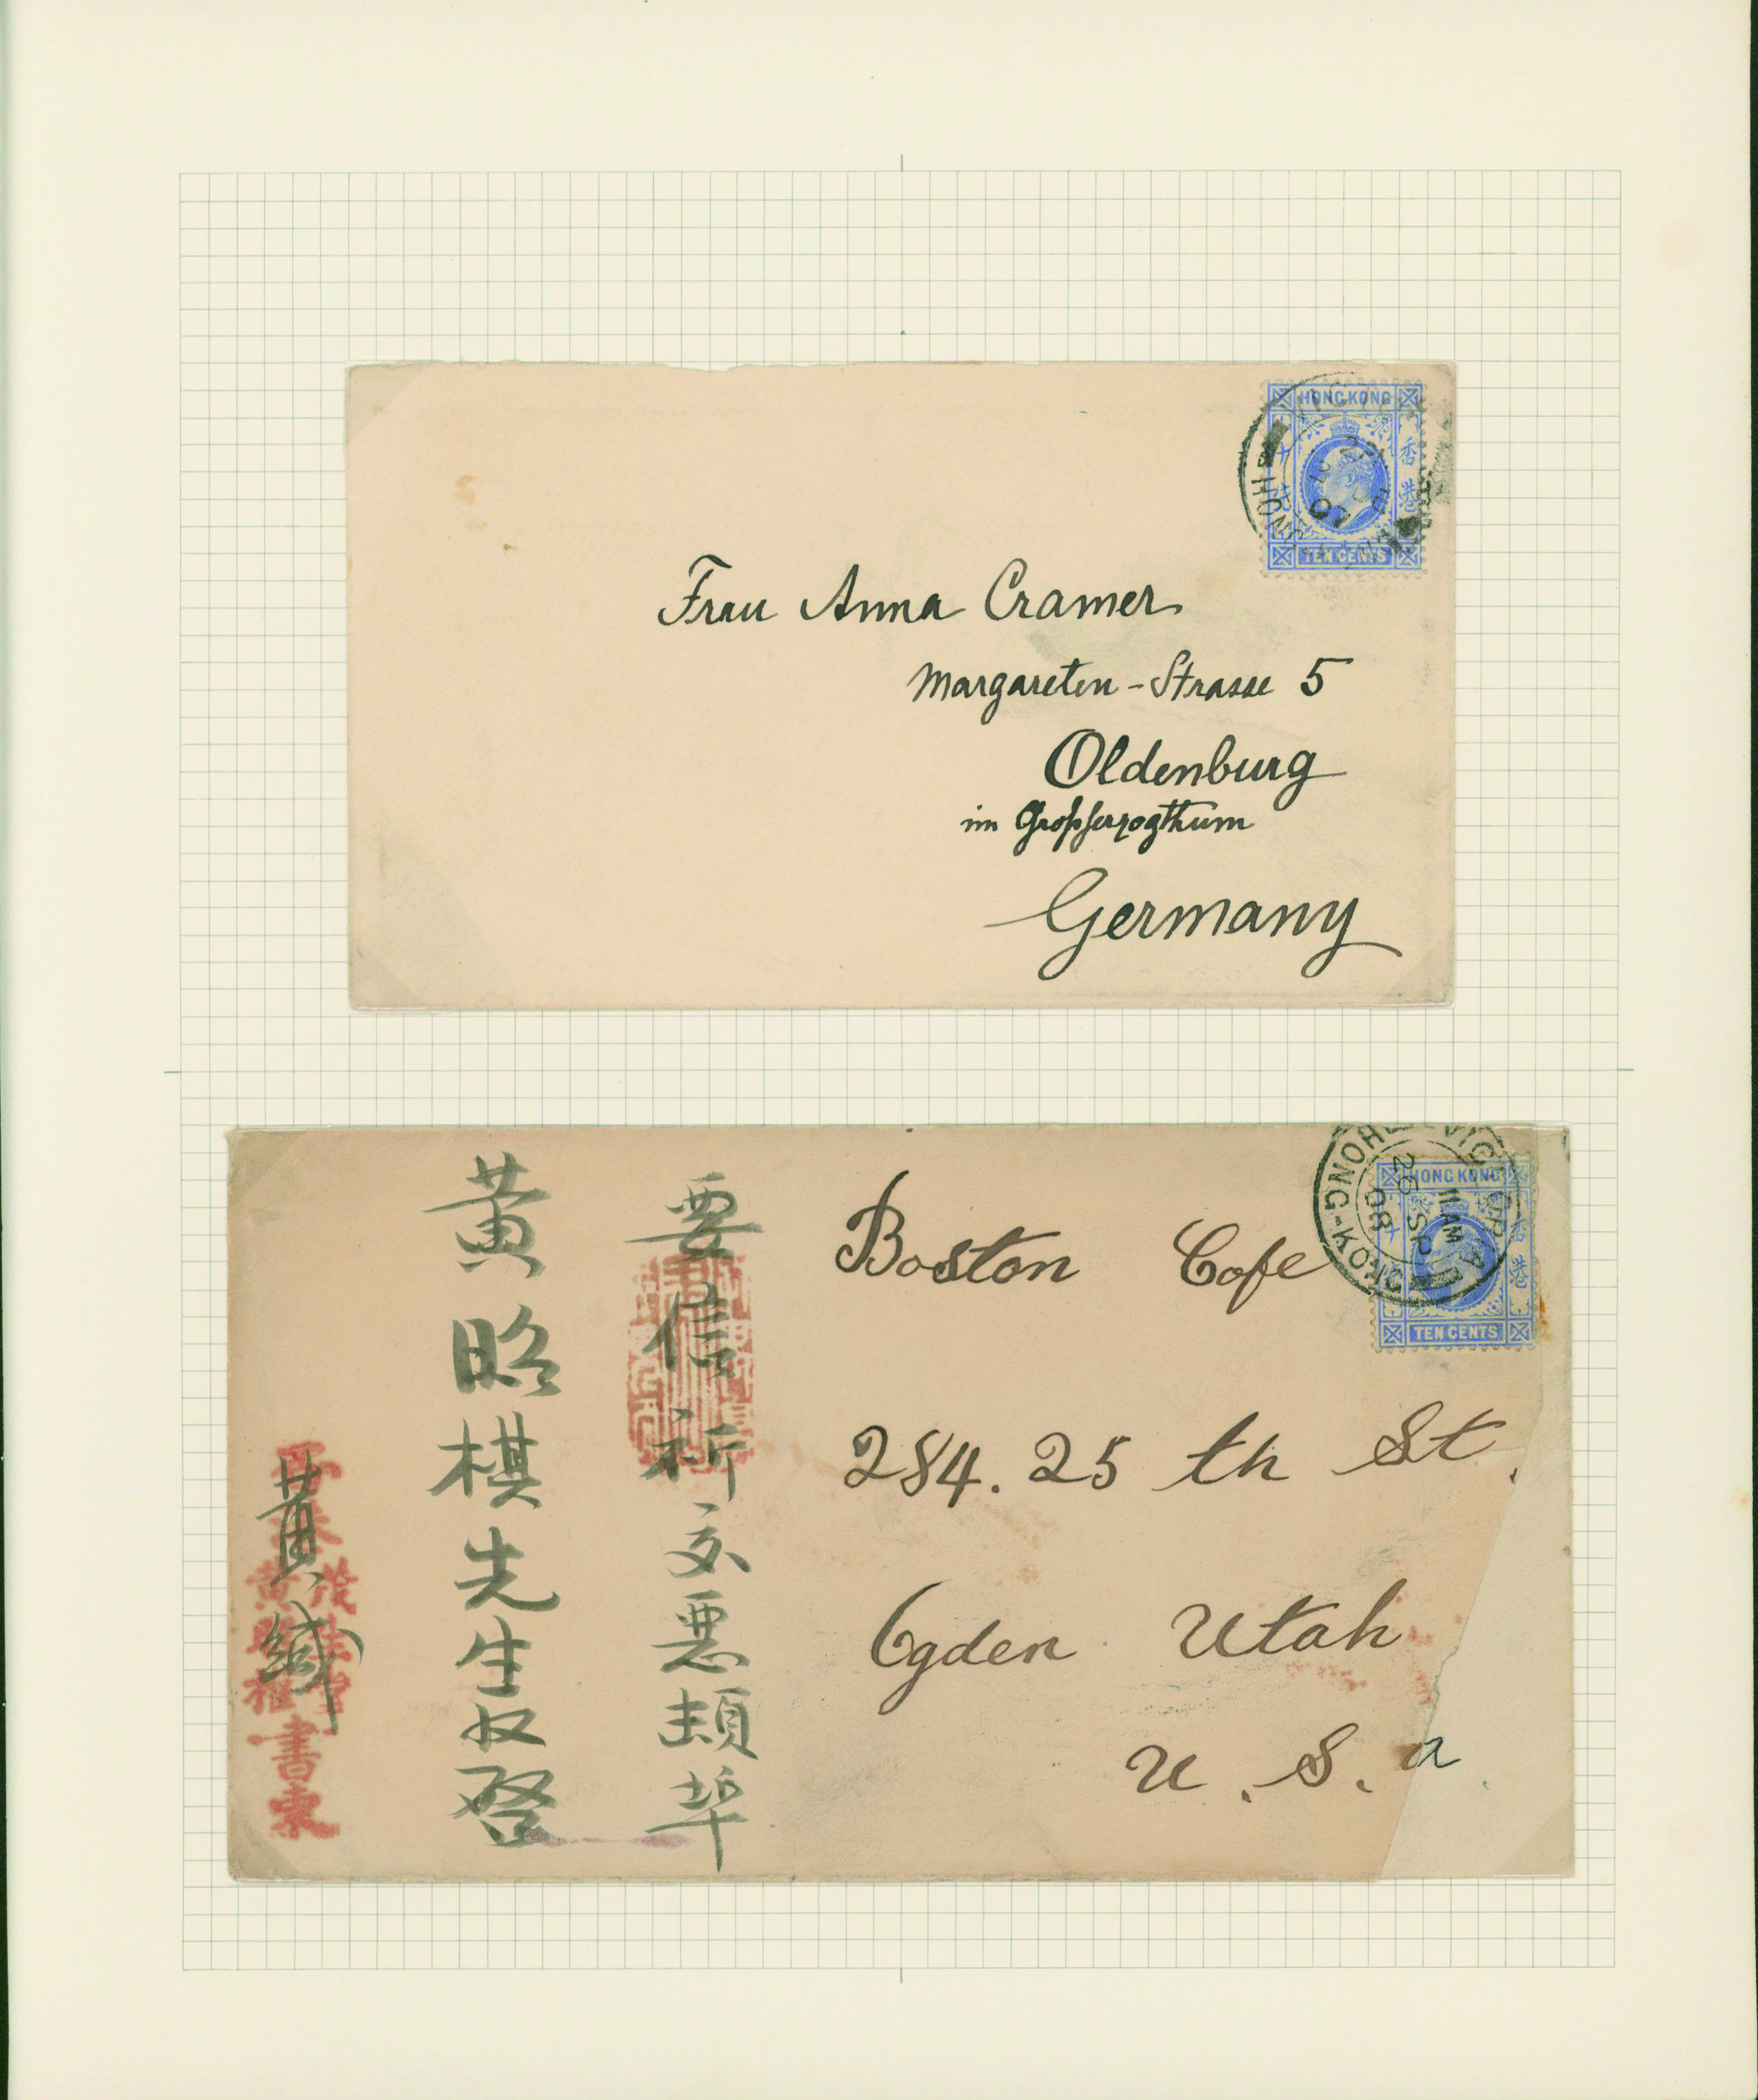 HONG KONG
香港
TEN CENTS
07
Frau Anna Cramer
Margareten-Strasse 5
Oldenburg
im Großherzogthum
Germany
HONG KONG
香港
TEN CENTS
VICTORIA HONG-KONG
11 AM
26 SP
08
Boston Cafe
284. 25 th St.
Ogden Utah
U. S. a
要信祈交
黃昭棋先生收啓
黃緘
書柬